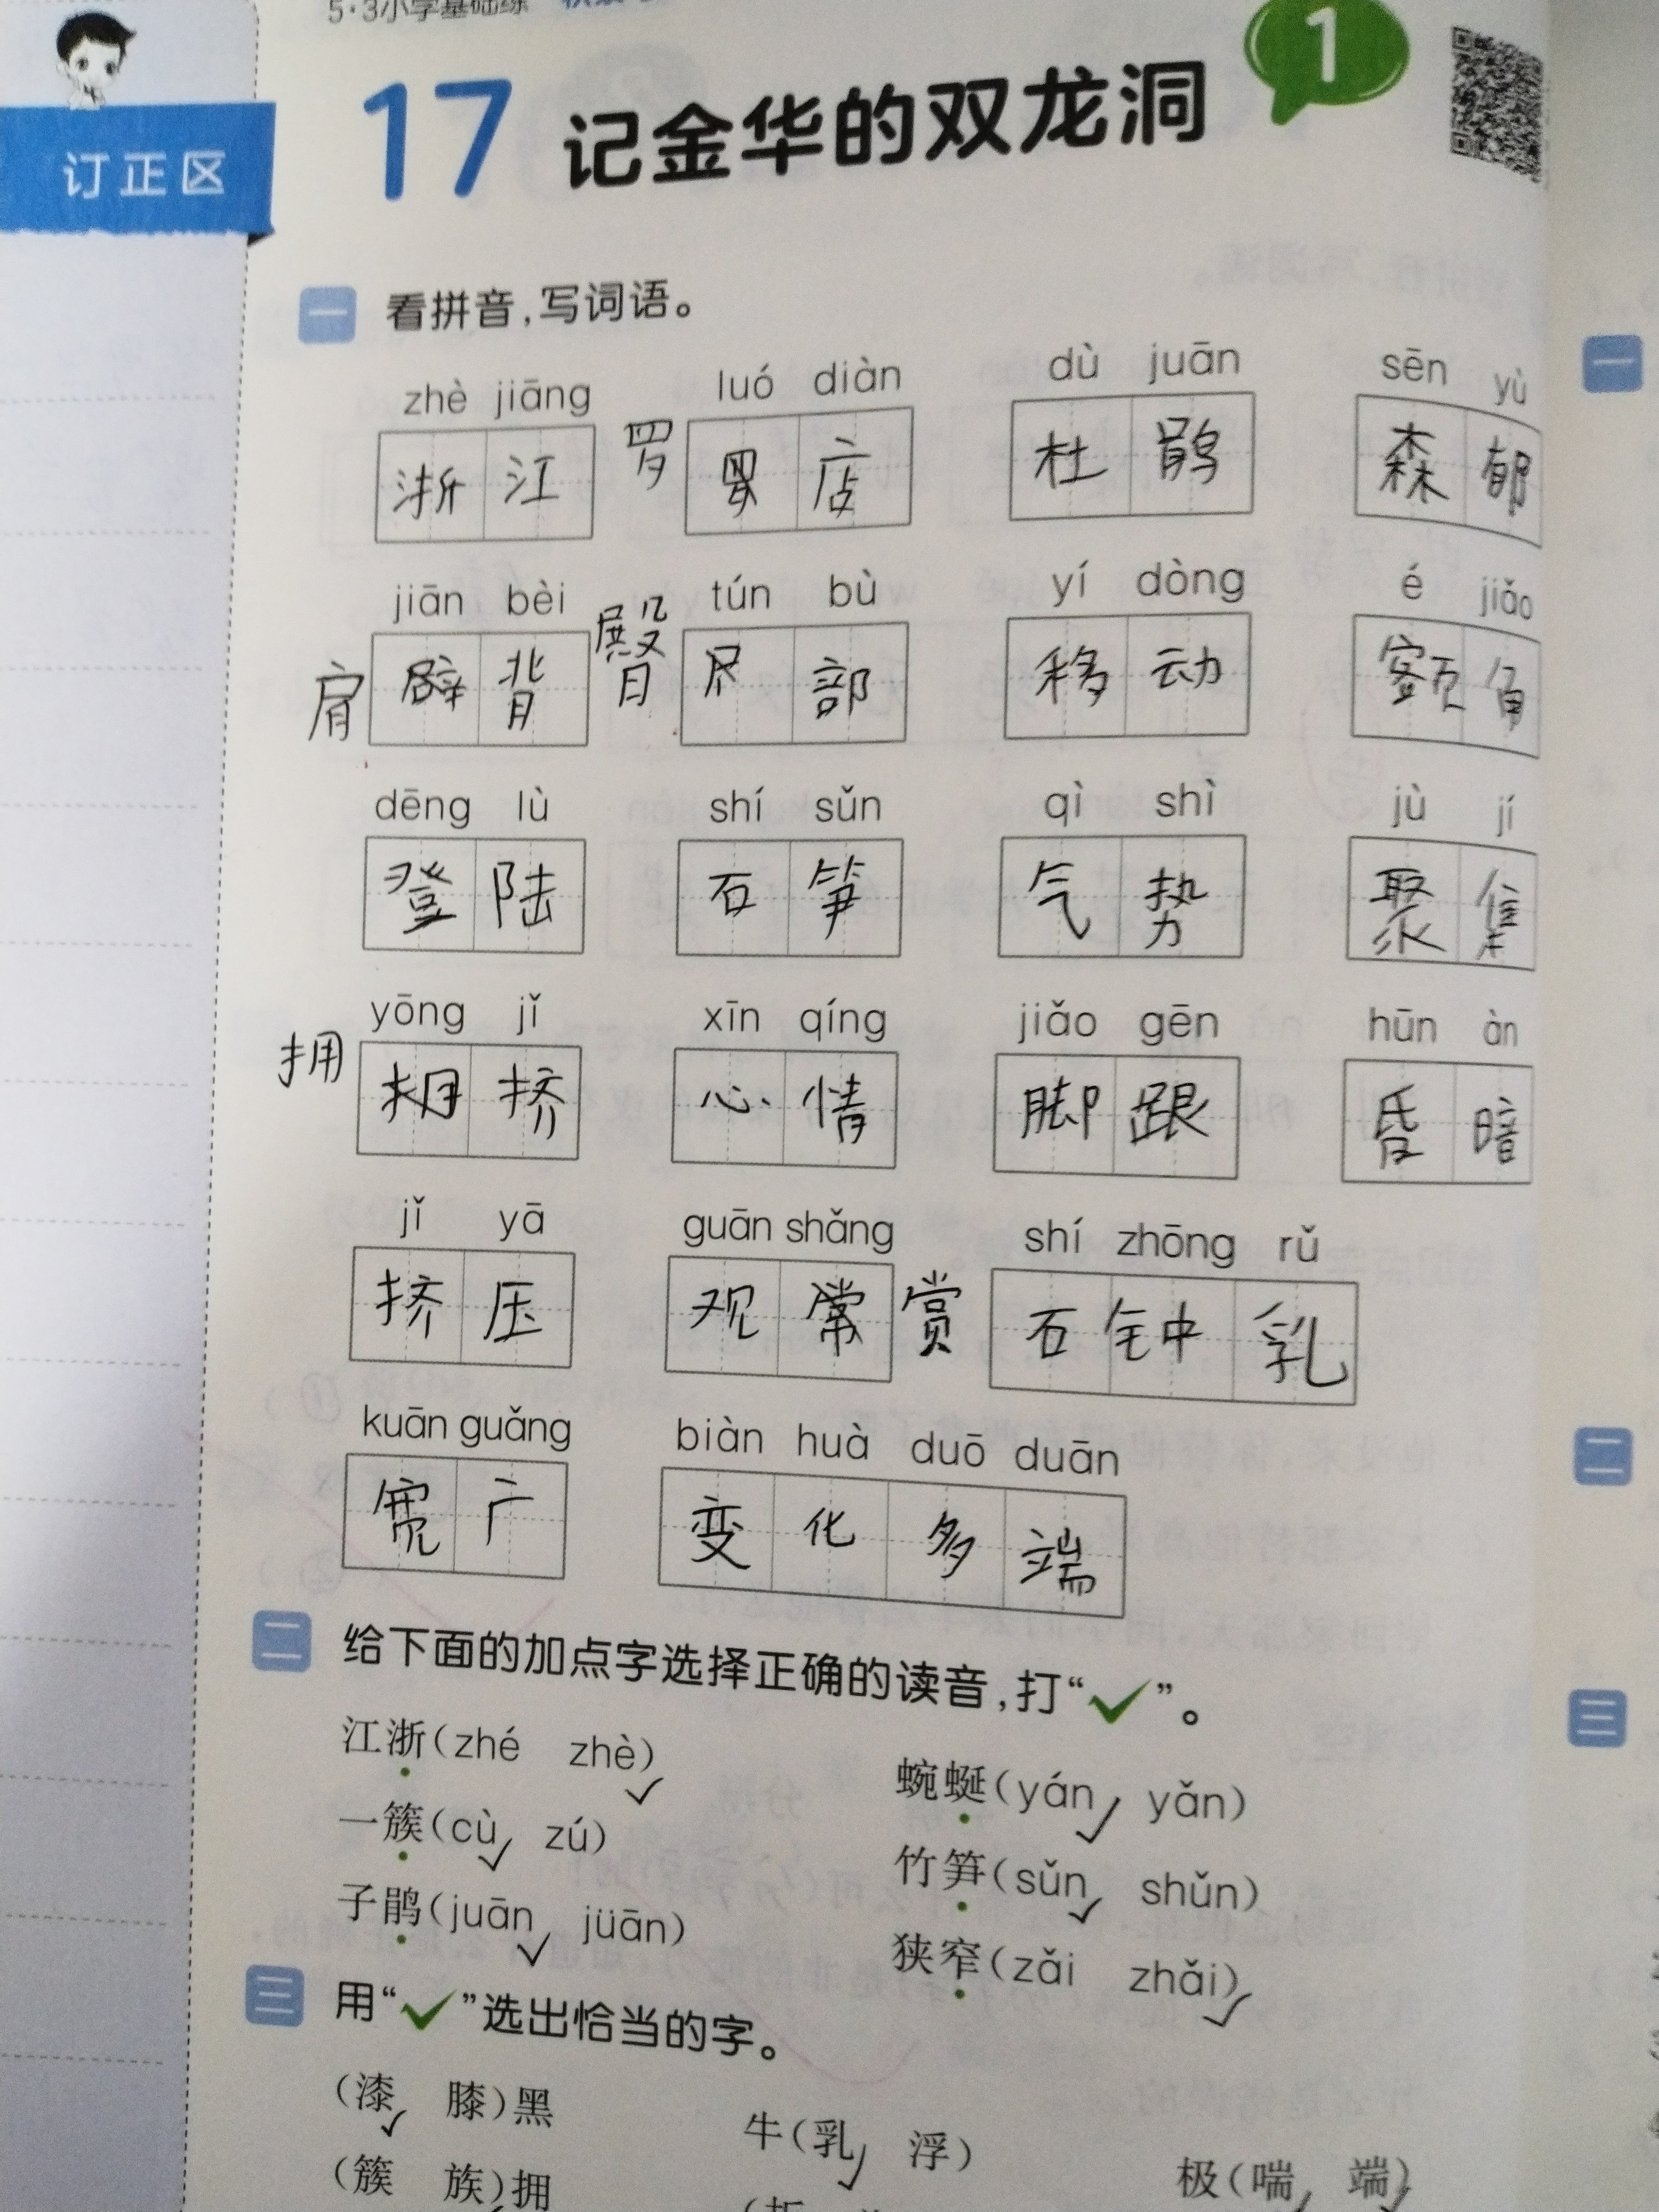 5·3小学基础练
订正区
17 记金华的双龙洞 1
一 看拼音,写词语。
zhè jiāng luó diàn dù juān sēn yù
浙江 罗 店 杜鹃 森郁
jiān bèi tún bù yí dòng é jiǎo
肩 背 臀 部 移动 额角
dēng lù shí sǔn qì shì jù jí
登陆 石笋 气势 聚集
yōng jǐ xīn qíng jiǎo gēn hūn àn
拥 挤 心情 脚跟 昏暗
jǐ yā guān shǎng shí zhōng rǔ
挤压 观常 赏 石钟乳
kuān guǎng biàn huà duō duān
宽广 变化多端
二 给下面的加点字选择正确的读音,打“✓”。
江浙(zhé zhè)✓ 蜿蜒(yán✓ yǎn)
一簇(cù✓ zú) 竹笋(sǔn✓ shǔn)
子鹃(juān✓ jüān) 狭窄(zǎi zhǎi)✓
三 用“✓”选出恰当的字。
(漆✓ 膝)黑 牛(乳✓ 浮) 极(喘 端)
(簇 族)拥
一
二
三